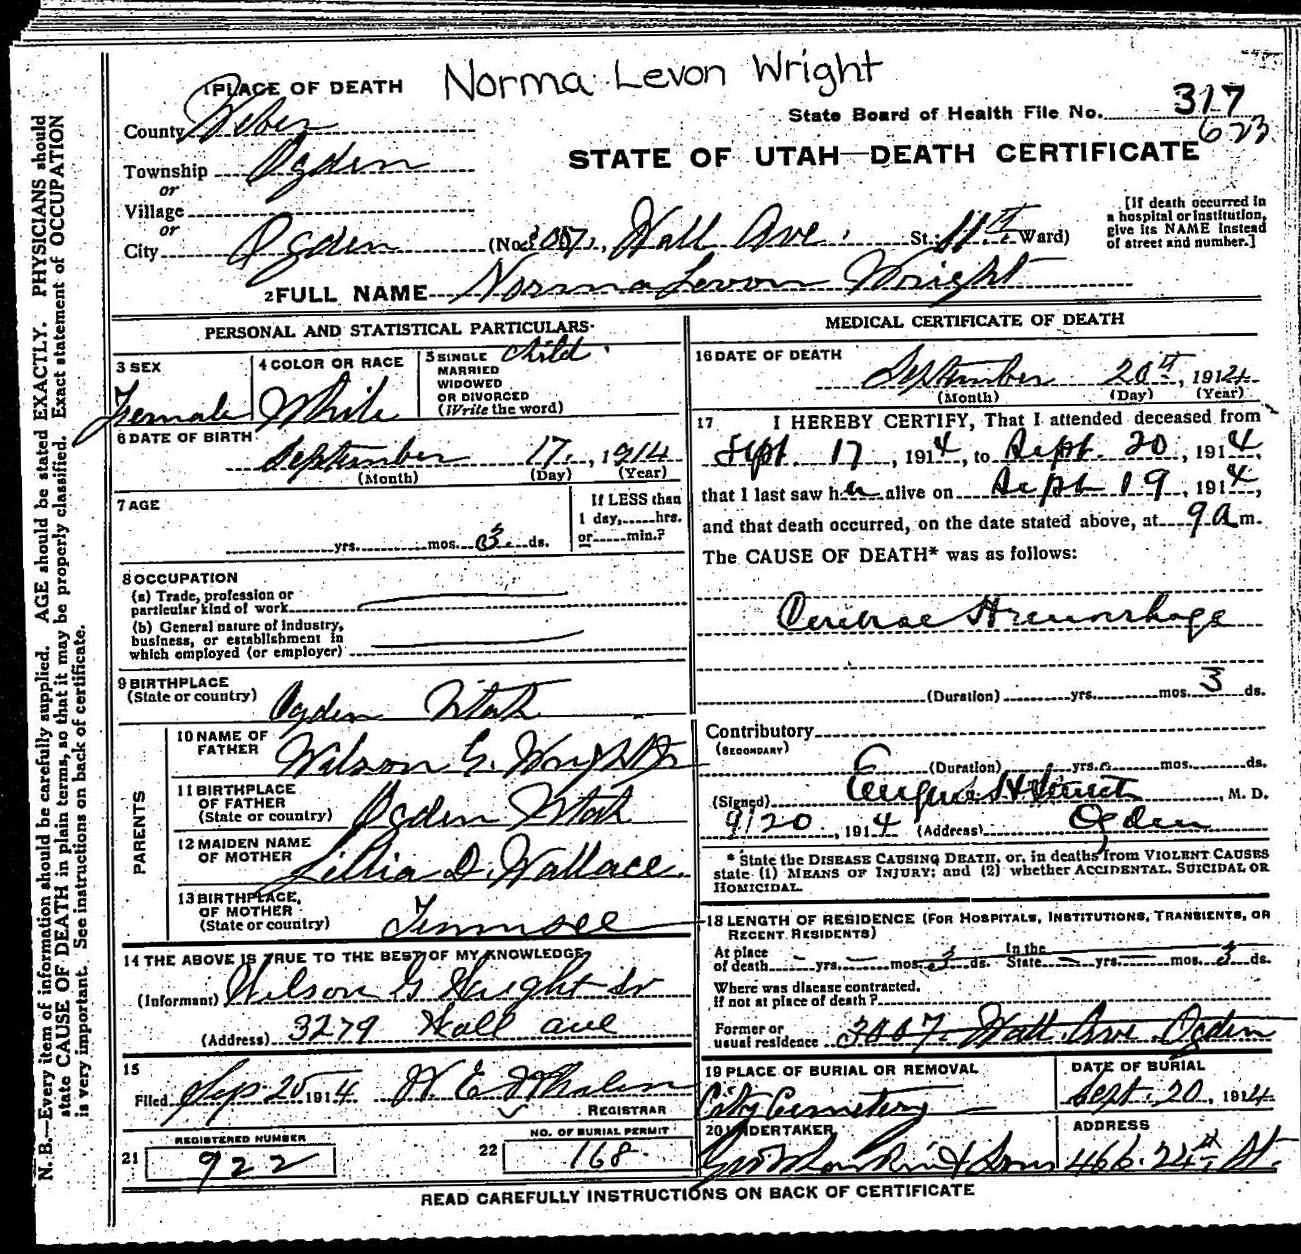 Norma Levon Wright
1 PLACE OF DEATH
State Board of Health File No. 317
623
County Weber
STATE OF UTAH—DEATH CERTIFICATE
Township Ogden
or
Village
or
City Ogden (No. 3007 Wall Ave. St.; 11th Ward)
[If death occurred in
a hospital or institution,
give its NAME instead
of street and number.]
2 FULL NAME Norma Levon Wright
PERSONAL AND STATISTICAL PARTICULARS
3 SEX Female
4 COLOR OR RACE White
5 SINGLE Child
MARRIED
WIDOWED
OR DIVORCED
(Write the word)
6 DATE OF BIRTH
September 17, 1914
(Month) (Day) (Year)
7 AGE
yrs. mos. 3 ds.
If LESS than
1 day, hrs.
or min.?
8 OCCUPATION
(a) Trade, profession or
particular kind of work
(b) General nature of industry,
business, or establishment in
which employed (or employer)
9 BIRTHPLACE
(State or country) Ogden Utah
PARENTS
10 NAME OF
FATHER Wilson G. Wright Jr
11 BIRTHPLACE
OF FATHER
(State or country) Ogden Utah
12 MAIDEN NAME
OF MOTHER Lillia D. Wallace.
13 BIRTHPLACE,
OF MOTHER
(State or country) Tennsee
14 THE ABOVE IS TRUE TO THE BEST OF MY KNOWLEDGE
(Informant) Wilson G Wright Sr
(Address) 3279 Wall ave
15
Filed Sep 25 1914 REGISTRAR
21 REGISTERED NUMBER
922
22 NO. OF BURIAL PERMIT
168
MEDICAL CERTIFICATE OF DEATH
16 DATE OF DEATH
September 20th, 1914
(Month) (Day) (Year)
17 I HEREBY CERTIFY, That I attended deceased from
Sept. 17, 1914, to Sept. 20, 1914,
that I last saw her alive on Sept 19, 1914,
and that death occurred, on the date stated above, at 9 a m.
The CAUSE OF DEATH* was as follows:
Cerebral Hremorhage
(Duration) yrs. mos. 3 ds.
Contributory
(SECONDARY)
(Duration) yrs. mos. ds.
(Signed) Eugene H Smith, M. D.
9/20, 1914 (Address) Ogden
* State the DISEASE CAUSING DEATH, or, in deaths from VIOLENT CAUSES
state (1) MEANS OF INJURY; and (2) whether ACCIDENTAL, SUICIDAL OR
HOMICIDAL.
18 LENGTH OF RESIDENCE (FOR HOSPITALS, INSTITUTIONS, TRANSIENTS, OR
RECENT RESIDENTS)
At place
of death – yrs. – mos. 3 ds. In the
State – yrs. – mos. 3 ds.
Where was disease contracted.
If not at place of death?
Former or
usual residence 3007 Wall Ave. Ogden
19 PLACE OF BURIAL OR REMOVAL
City Cemetery
DATE OF BURIAL
Sept. 20, 1914
20 UNDERTAKER
& Sons
ADDRESS
466. 24th St.
READ CAREFULLY INSTRUCTIONS ON BACK OF CERTIFICATE
N. B.—Every item of information should be carefully supplied. AGE should be stated EXACTLY. PHYSICIANS should
state CAUSE OF DEATH in plain terms, so that it may be properly classified. Exact statement of OCCUPATION
is very important. See instructions on back of certificate.